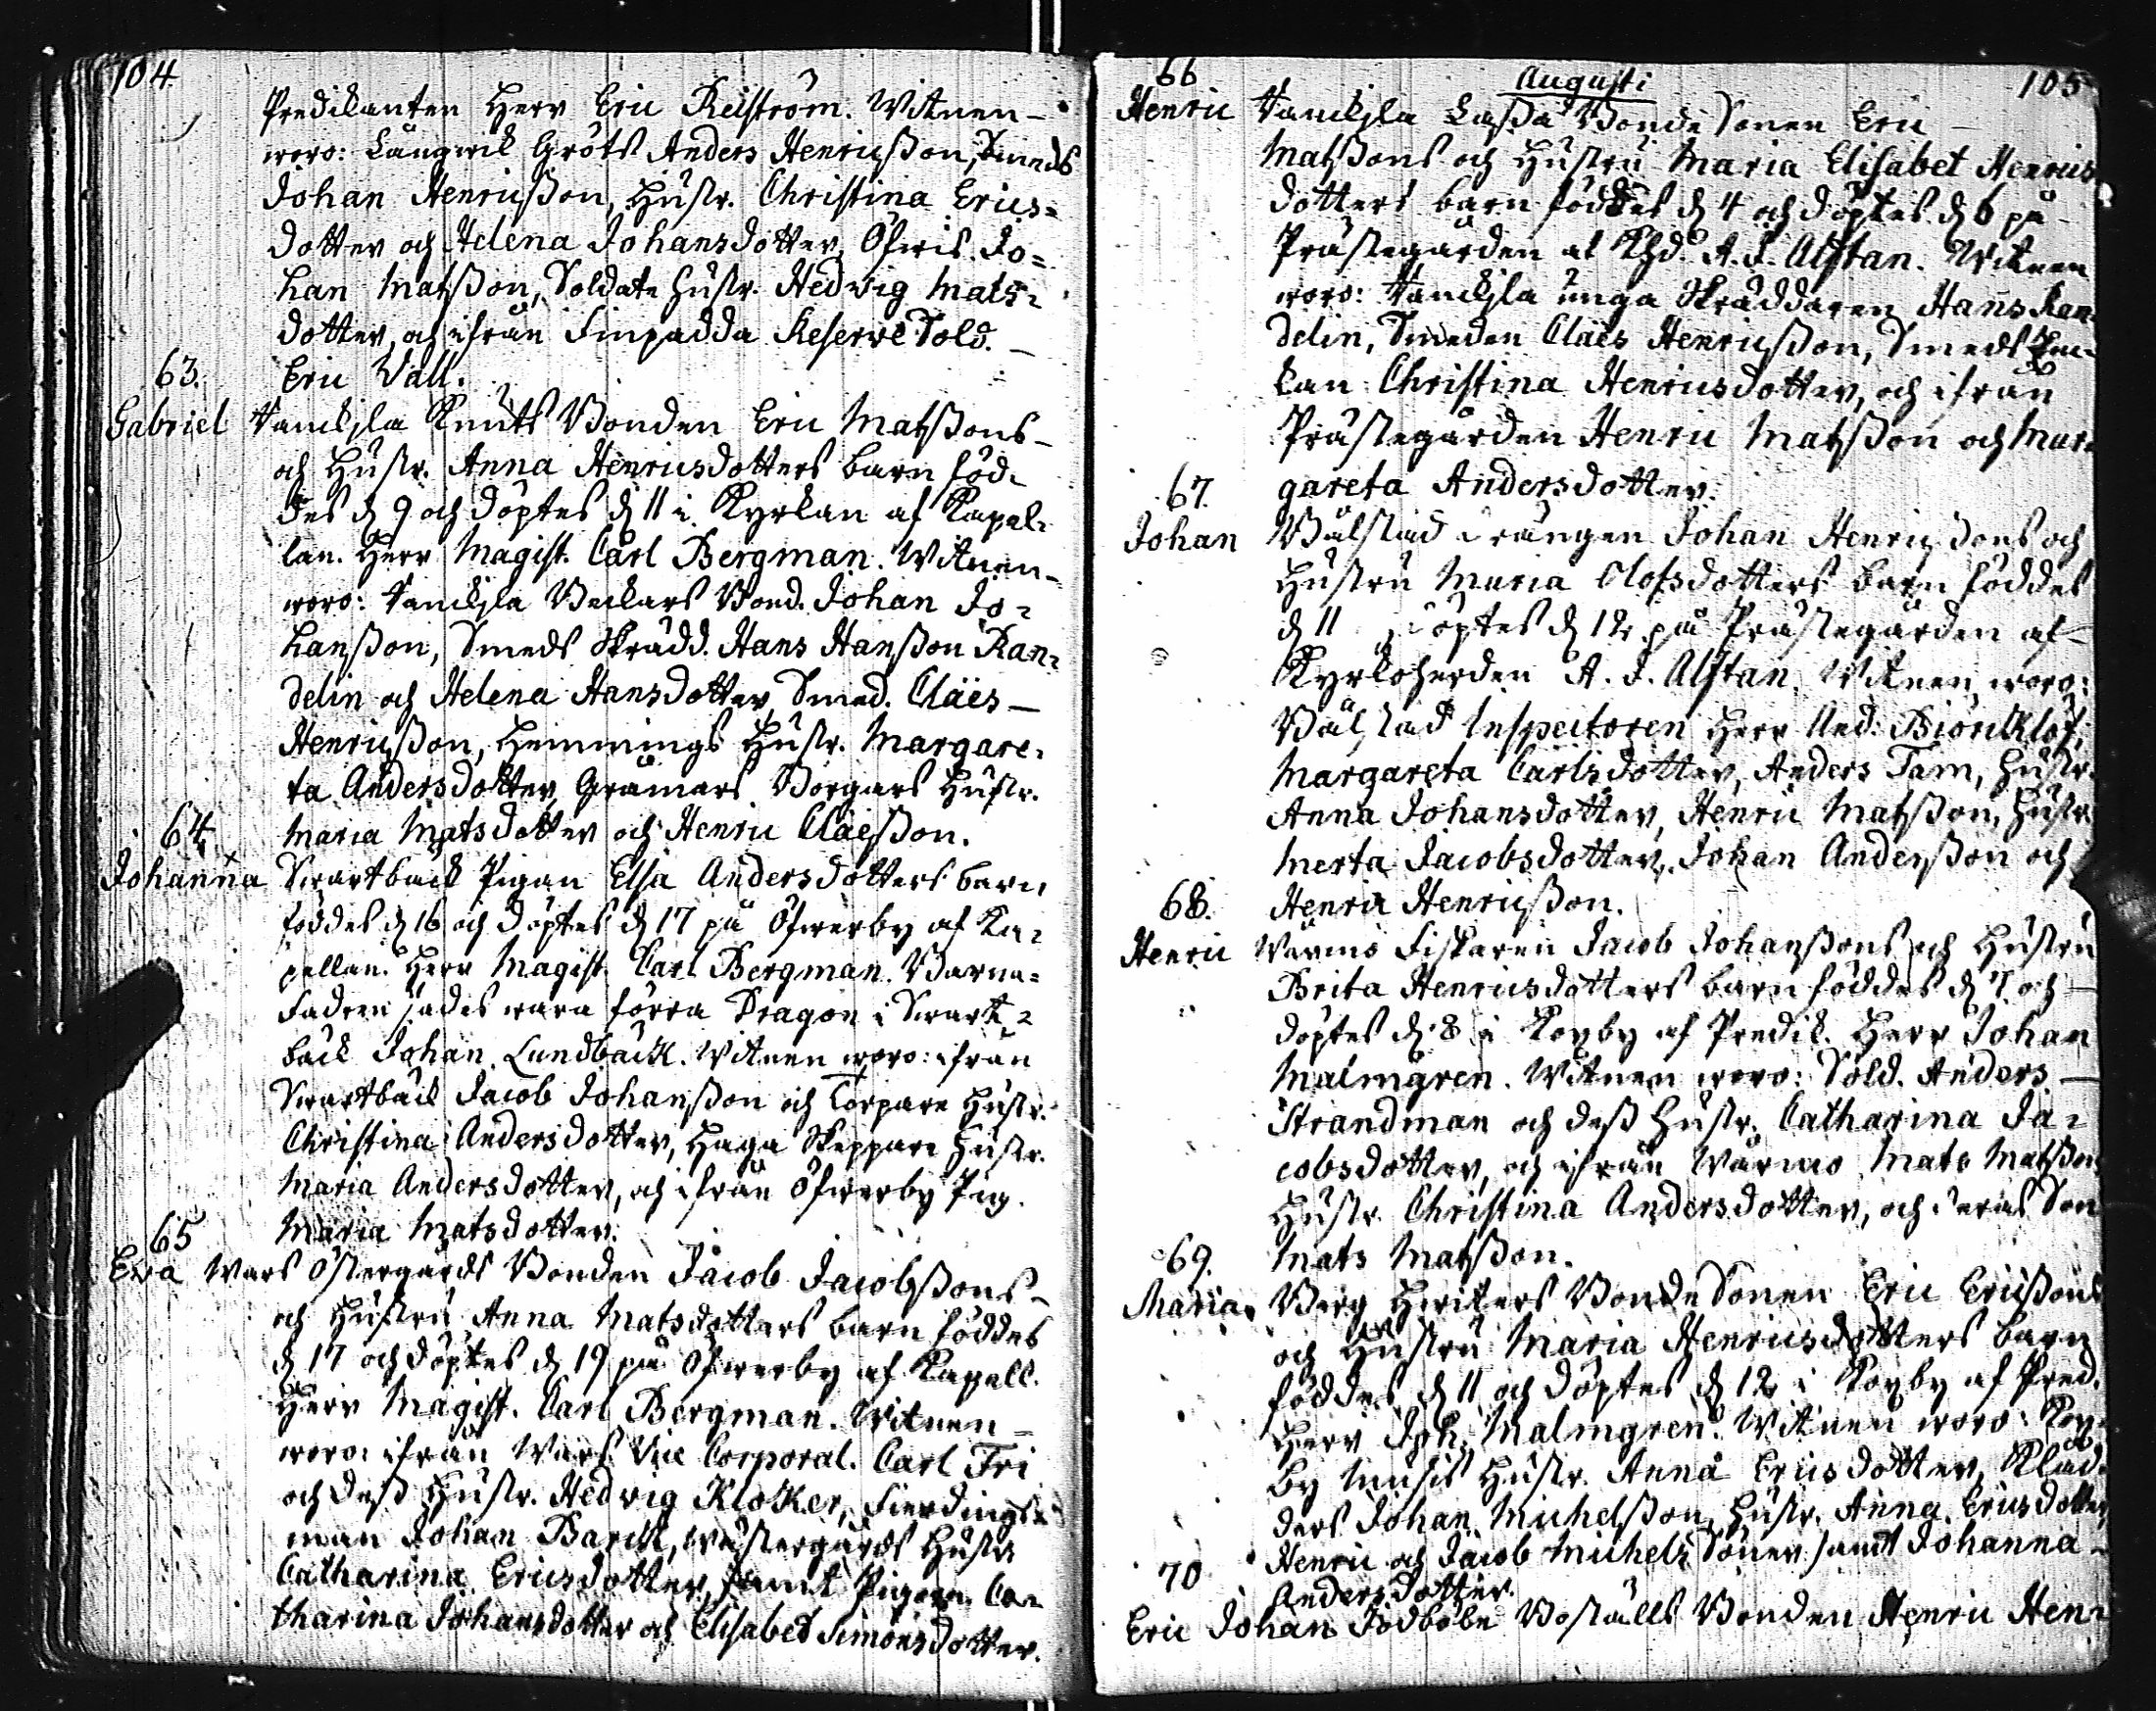 104.
Predikanten Herr Eric Relström. Witnen
woro: Långwik Gröts Anders Henricßon, Smeds
Johan Henricßon, Hustr. Christina Erics=
dotter och Helena Johansdotter, Öfwis. Jo=
han Matsßon, Soldate hustr. Hedvig Mats=
dotter, och ifrån Finpadda Reserve Sold.
63. Eric Wall.
Gabriel Knuts Bonden Eric Matsßons
och Hustr. Anna Henricsdotters barn föd=
des d. 9 och döptes d. 11 i Kyrkan af Kapel=
lan. Herr Magist. Carl Bergman. Witnen
woro: Beckars Bond. Johan Jo=
hansßon, Smeds Skrädd. Hans Hanßon Ran=
delin och Helena Hansdotter, Smed. Claës
Henricßon, Hemmings Hustr. Margare=
ta Andersdotter, Gråmars Borgars Hustr.
64. Maria Matsdotter och Henric Claeßon.
Johanna Swartbäck Pigan Elsa Andersdotters barn
föddes d. 16 och döptes d. 17 på Öfwerby af Ka=
pellan. Herr Magist. Carl Bergman. Barna=
Fadren sades wara förra Dragon i Swart=
bäck Johan Lundbäck. Witnen woro: ifrån
Swartbäck Jacob Johanßon och Torpare Hustr.
Christina Andersdotter, Haga Skeppare Hustr.
Maria Andersdotter, och ifrån Öfwerby Pig.
65 Maria Matsdotter.
Eva Wars Östergårds Bonden Jacob Jacobßons
och Hustru Anna Matsdotters barn föddes
d. 17 och döptes d. 19 på Öfwerby af Kapell.
Herr Magist. Carl Bergman. Witnen
woro: ifrån Wars Vice Corporal. Carl Fri
och deß Hustr. Hedvig Klocker, Fierdings=
man Johan Barck, Westergårds Hustr.
Catharina Ericsdotter, samt Pigorn. Ca=
tharina Johansdotter och Elisabet Simonsdotter.
66 Augusti 105
Henric Laßa Bonde Sonen Eric
Matsßons och Hustru Maria Elisabet Henrics
dotters barn föddes d. 4 och döptes d. 6 på
Prästegården af Khd. A. J. Alftan. Witnen
woro: unga Skräddaren Hans Ran=
delin, Smeden Claës Henricßon, Smeds En=
kan Christina Henricsdotter, och ifrån
Prästegården Henric Matsßon och Mar=
67. gareta Andersdotter.
Johan Drängen Johan Henricsons och
Hustru Maria Olofsdotters barn föddes
d. 11 döptes d. 12 på Prästegården af
Kyrkoherden A. J. Alftan. Witnen woro:
Inspectoren Herr And: Biörklöf,
Margareta Carlsdotter, Anders Tam, Hustr.
Anna Johansdotter, Henric Matsßon, Hustr.
Merta Jacobsdotter, Johan Anderßon och
68. Henric Henricßon.
Henric Wärnö Fiskaren Jacob Johanßons och Hustru
Brita Henricsdotters barn föddes d. 7 och
döptes d. 8 i Royby af Predik. Herr Johan
Malmgren. Witnen woro: Sold. Anders
Strandman och deß Hustr. Catharina Ja=
cobsdotter, och ifrån Wärnö Mats Matsßon
Hustr. Christina Andersdotter, och deras Son
69. Mats Matsßon.
Maria Berg Bonde Sonen Eric Ericßons
och Hustru Maria Henricsdotters barn
föddes d. 11 och döptes d. 12 i Royby af Pred.
Herr Joh. Malmgren. Witnen woro: Roy=
by Hustr. Anna Ericsdotter,
Johan Michelßon, Hustr. Anna Ericsdotter,
70 Henric och Jacob Michels Söner samt Johanna
Andersdotter.
Eric Johan Boställs Bonden Henric Hen=